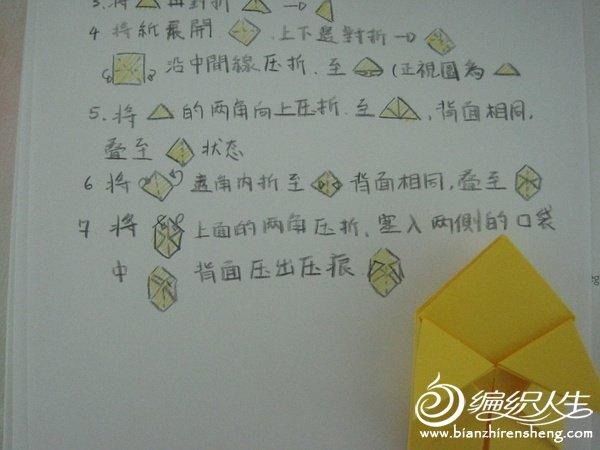 3. 將 再對折
4 將紙展開 . 上下邊對折
沿中間線压折. 至 (正視圖為
5. 将 的两角向上压折. 至 , 背面相同,
叠至 状态
6 将 直角内折至 背面相同, 叠至
7 将 上面的两角压折, 塞入两侧的口袋
中 背面压出压痕
编织人生
www.bianzhirensheng.com